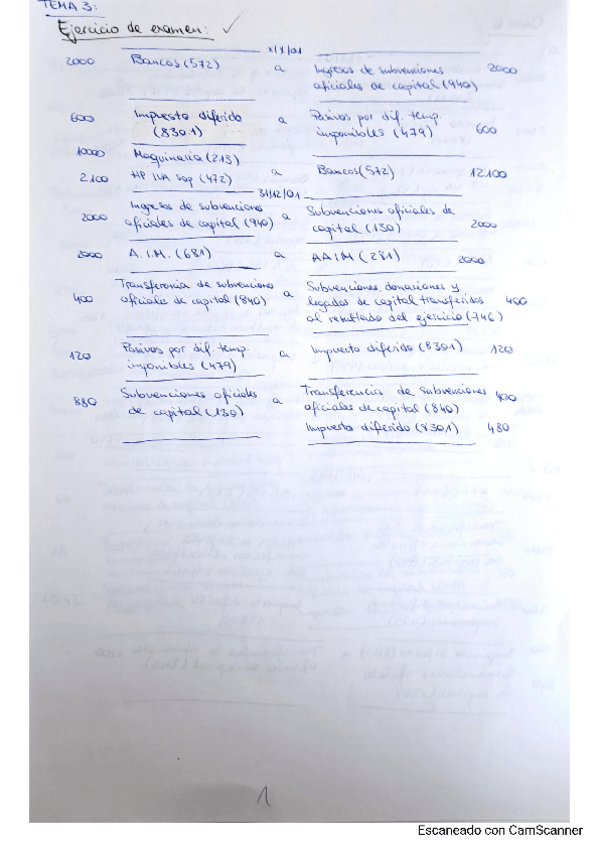 TEMA 3:
Ejercicio de examen: ✓
X/X/01
2000 Bancos (572) a Ingresos de subvenciones 2000
oficiales de capital (940)
600 Impuesto diferido a Pasivos por dif. temp.
(8301) imponibles (479) 600
10000 Maquinaria (213)
2100 HP IVA sop (472) a Bancos (572) 12100
31/12/01
Ingresos de subvenciones
2000 oficiales de capital (940) a Subvenciones oficiales de
capital (130) 2000
2000 A.I.M. (681) a AAIM (281) 2000
Transferencia de subvenciones Subvenciones, donaciones y
400 oficiales de capital (840) a legados de capital transferidos 400
al resultado del ejercicio (746)
120 Pasivos por dif. temp. a Impuesto diferido (8301) 120
imponibles (479)
880 Subvenciones oficiales a Transferencia de subvenciones 400
de capital (130) oficiales de capital (840)
Impuesto diferido (8301) 480
1
Escaneado con CamScanner